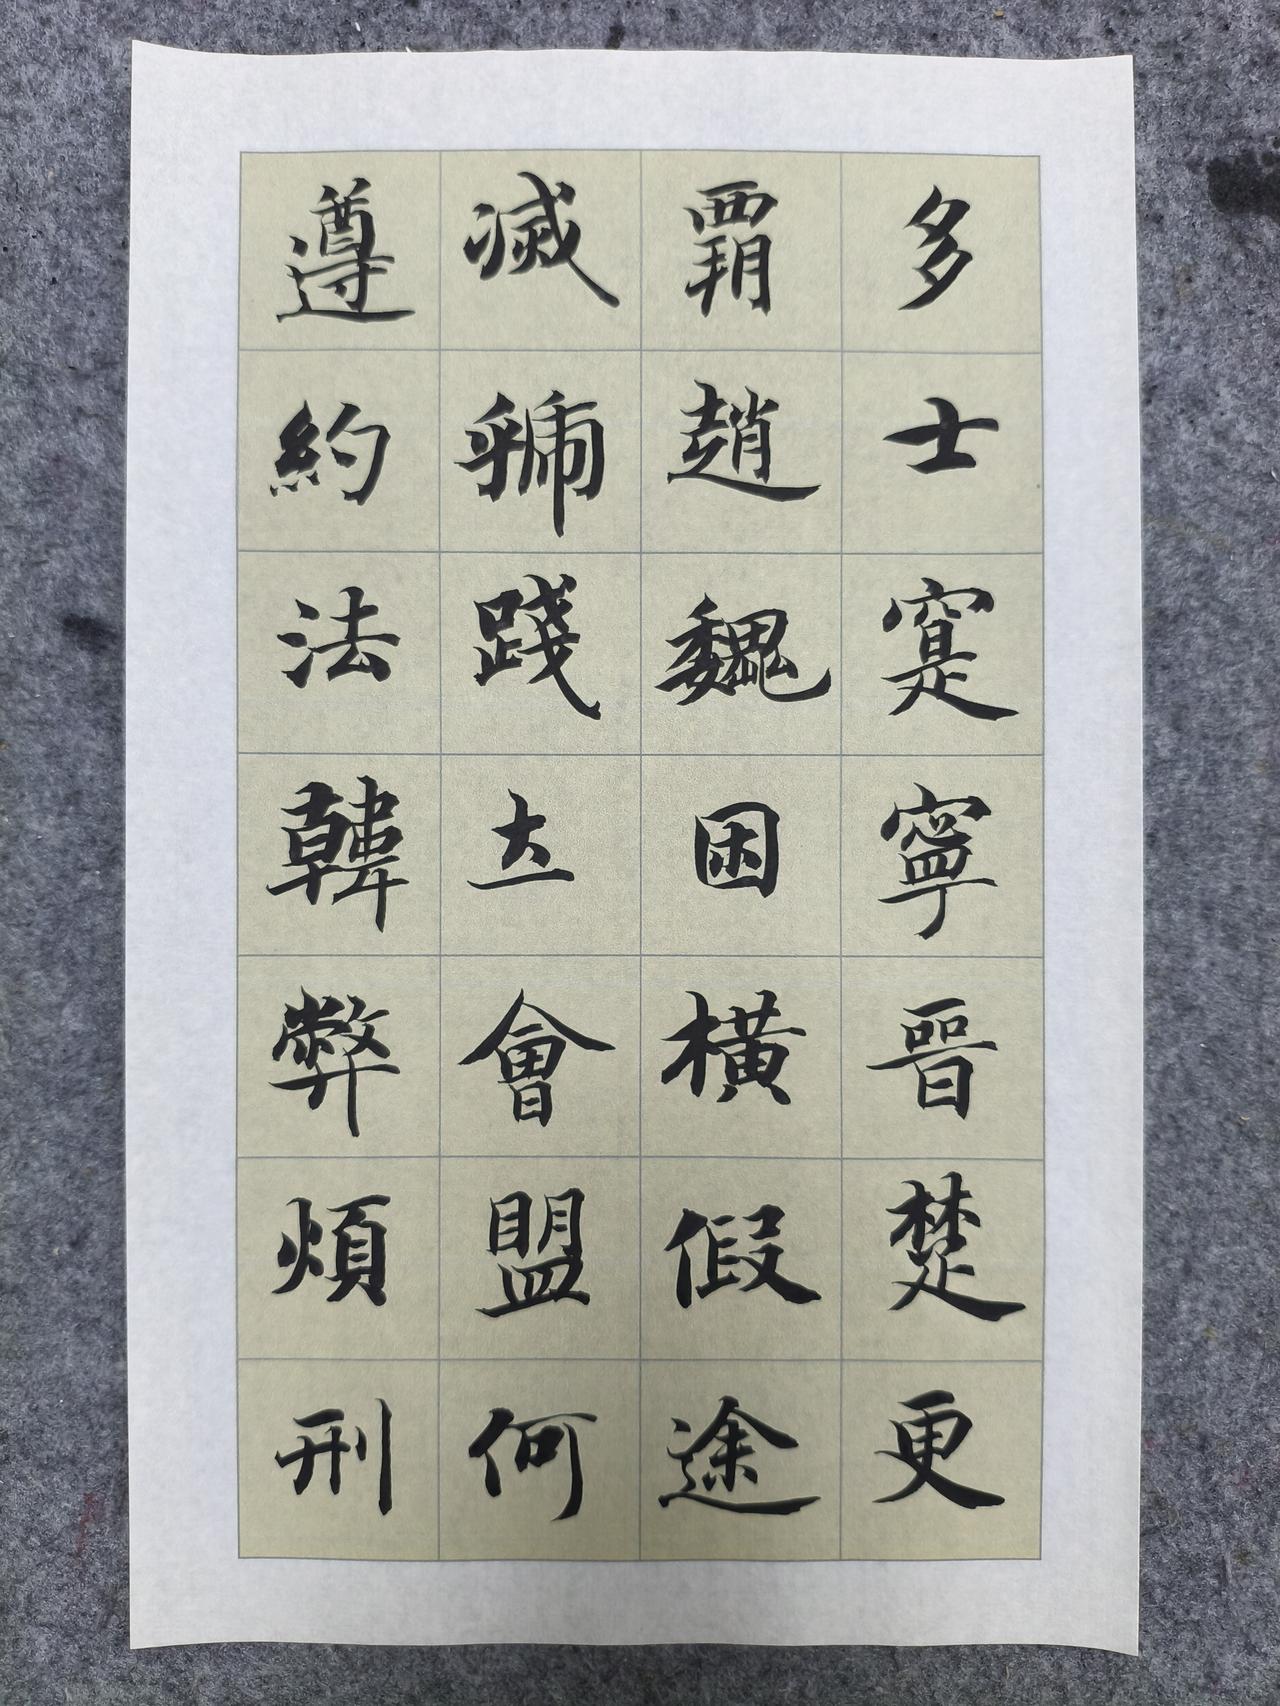 多士寔寧晉楚更
霸趙魏困橫假途
滅虢踐土會盟何
遵約法韓弊煩刑